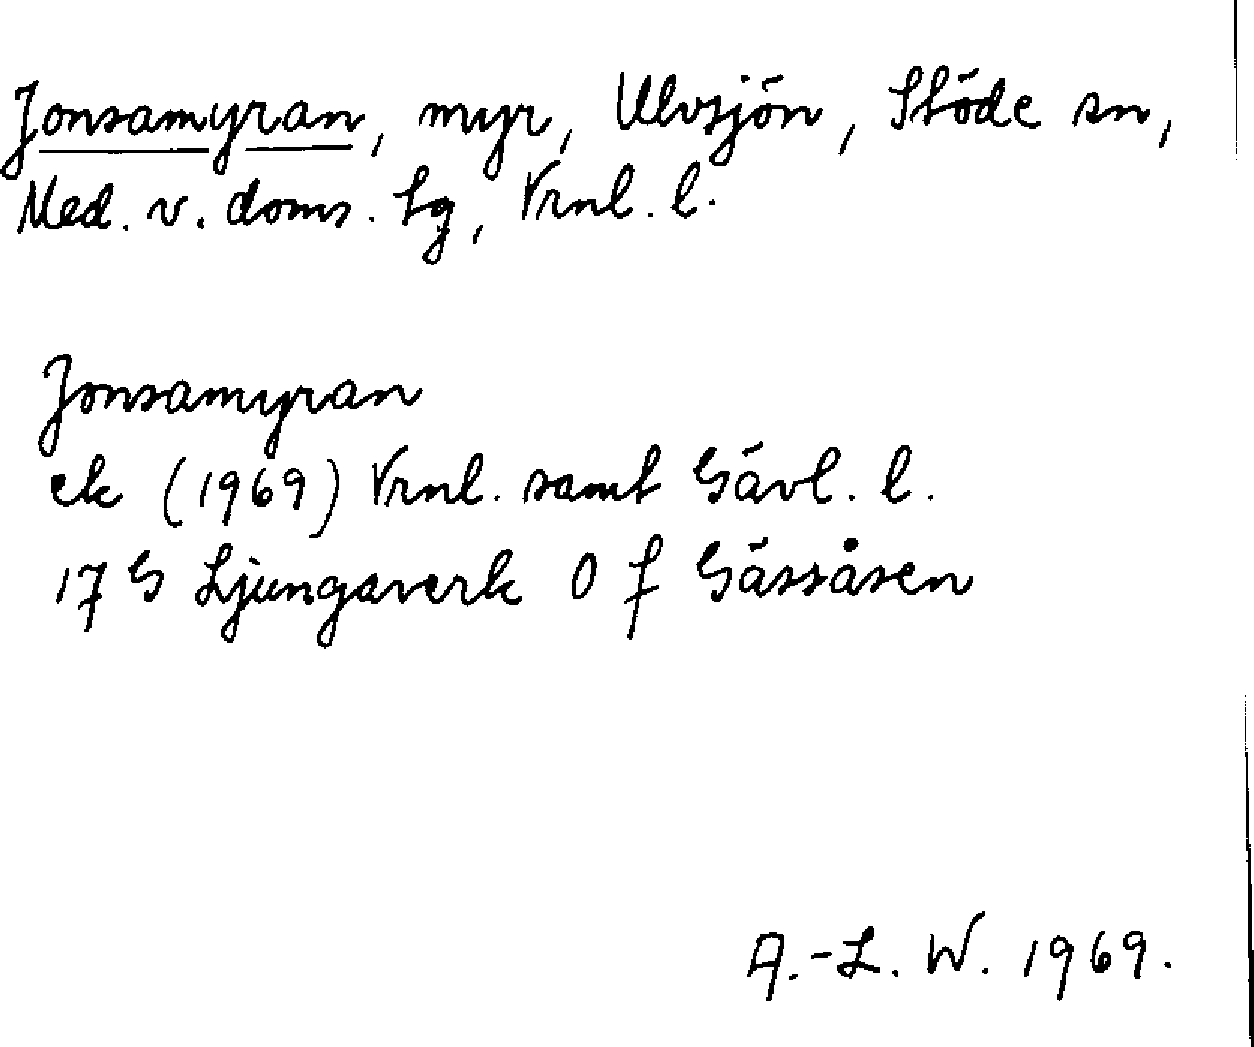 Jonsamyran, myr, Ulvsjön, Stöde sn,
Med. v. doms. tg, Vrnl. l.
Jonsamyran
ek (1969) Vrnl. samt Gävl. l.
17 G Ljungaverk 0 f Gässåsen
A.-L. W. 1969.